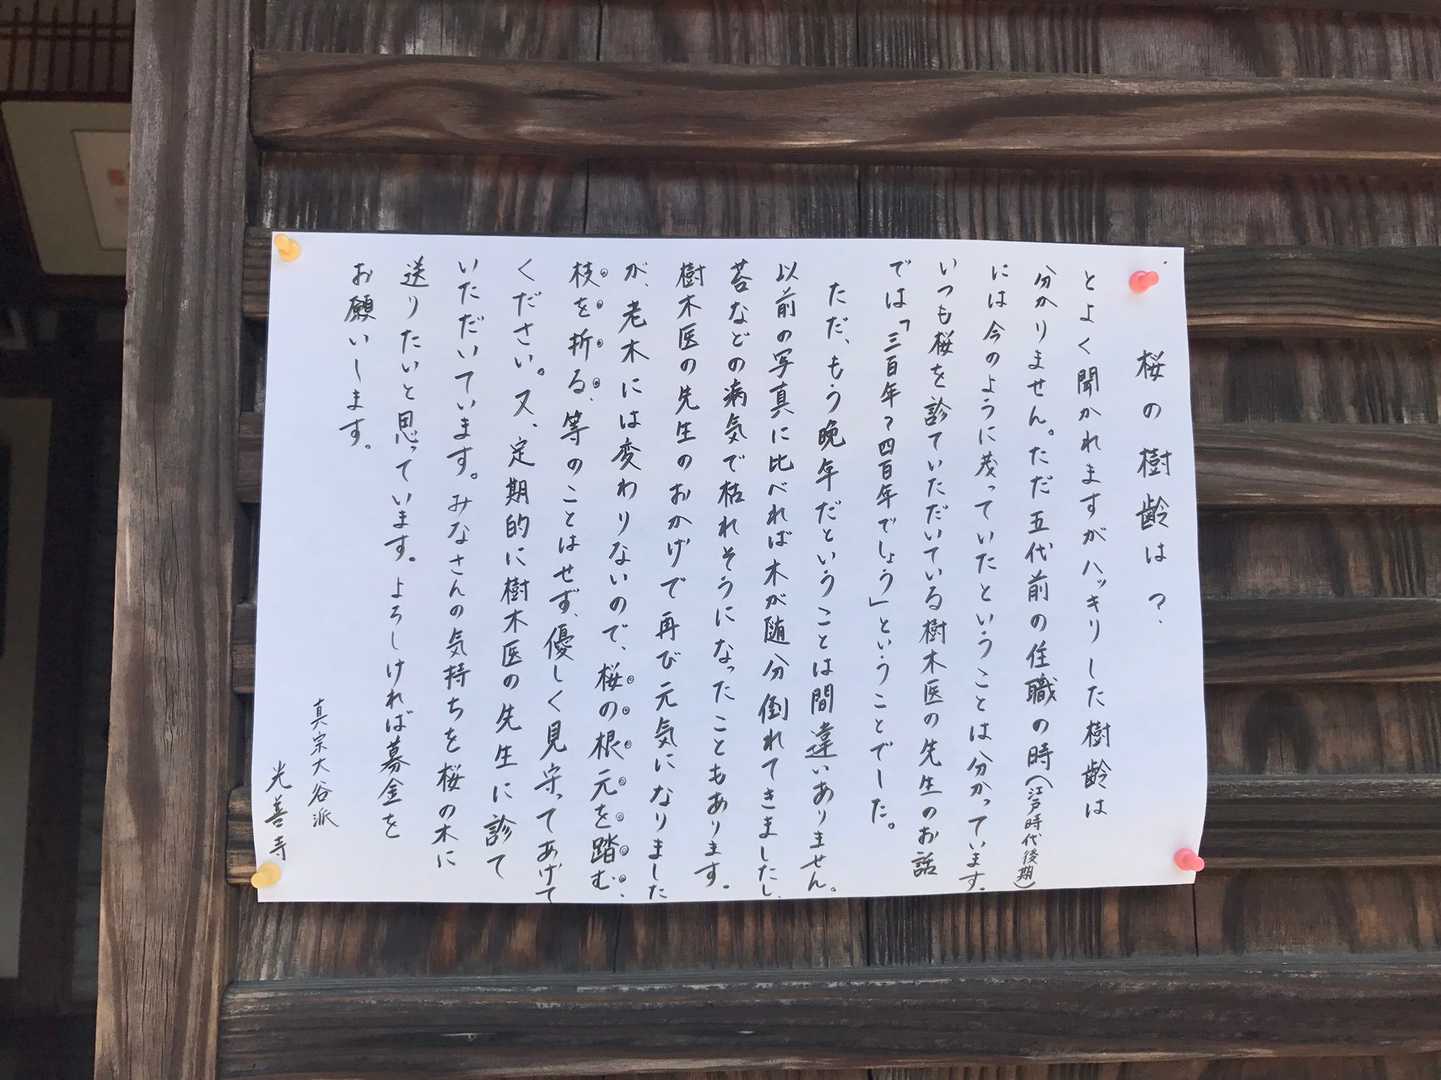 桜の樹齢は?
とよく聞かれますがハッキリした樹齢は
分かりません。ただ五代前の住職の時(江戸時代後期)
には今のように茂っていたということは分かっています。
いつも桜を診ていただいている樹木医の先生のお話
では「三百年?四百年でしょう」ということでした。
ただ、もう晩年だということは間違いありません。
以前の写真に比べれば木が随分倒れてきましたし、
苔などの病気で枯れそうになったこともあります。
樹木医の先生のおかげで再び元気になりました
が、老木には変わりないので、桜の根元を踏む、
枝を折る、等のことはせず、優しく見守ってあげて
ください。又、定期的に樹木医の先生に診て
いただいています。みなさんの気持ちを桜の木に
送りたいと思っています。よろしければ募金を
お願いします。
真宗大谷派
光善寺